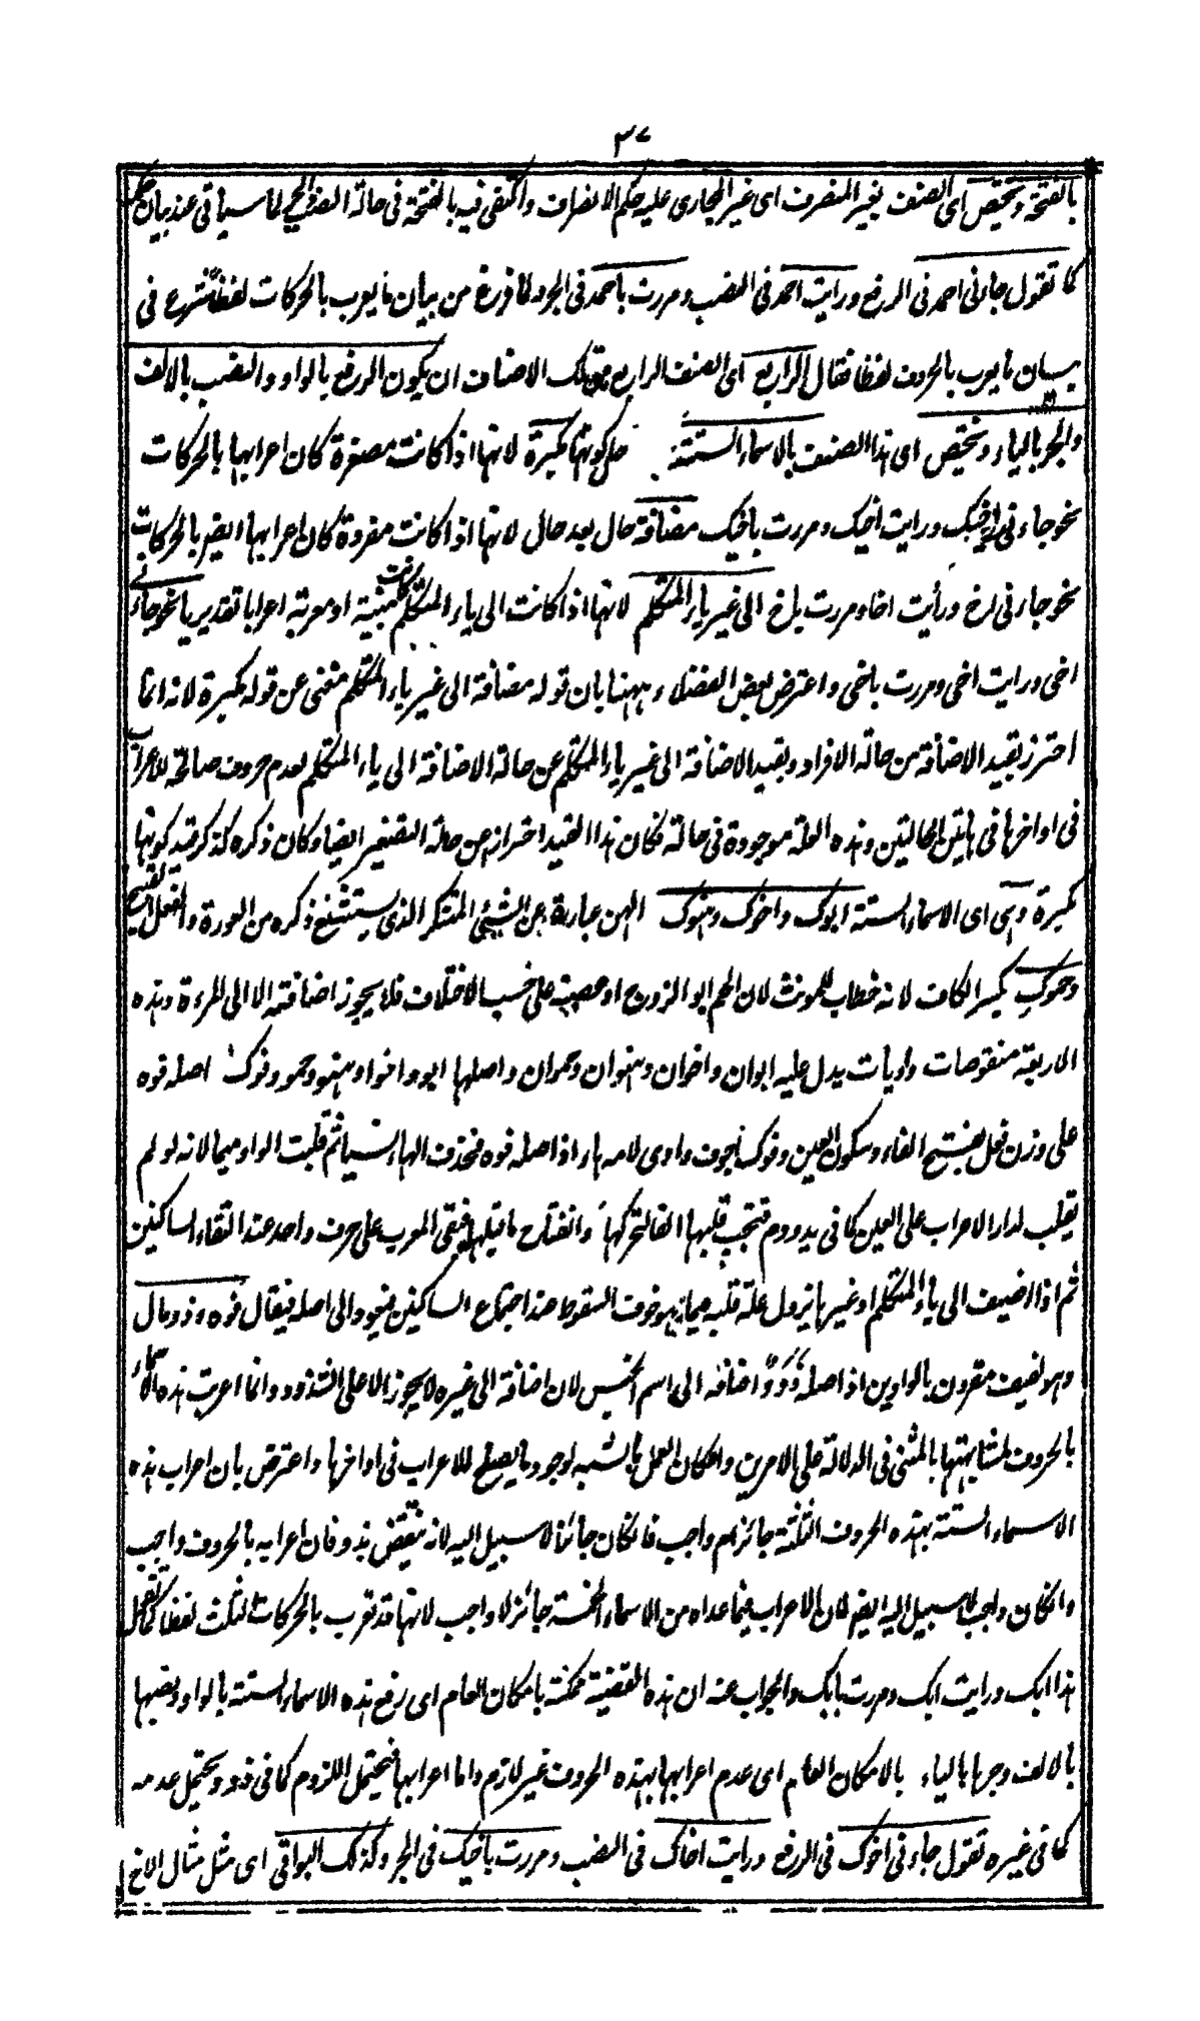 ٣٧
بالفتحة ويختص اى الصنف بغير المنصرف اى غير الجارى عليه حكم الانصراف واكتفى فيه بالفتحة فى حالة النصب والجر لما سياتى عند بيان حكمه
كما تقول جاءنى احمد فى الرفع ورايت احمد فى النصب ومررت باحمد فى الجر ولما فرغ من بيان ما يعرب بالحركات لفظا شرع فى
بيان ما يعرب بالحروف لفظا فقال الرابع اى الصنف الرابع من تلك الاصناف ان يكون الرفع بالواو والنصب بالالف
والجر بالياء ويختص اى هذا الصنف بالاسماء الستة حال كونها مكبرة لانها اذا كانت مصغرة كان اعرابها بالحركات
نحو جاءنى اخيك ورايت اخيك ومررت باخيك مضافة حال بعد حال لانها اذا كانت مفردة كان اعرابها ايضا بالحركات
نحو جاءنى اخ ورأيت اخا ومررت باخ الى غير ياء المتكلم لانها اذا كانت الى ياء المتكلم كانت مبنية او معربة اعرابا تقديريا نحو جاءنى
اخى ورايت اخى ومررت باخى واعترض بعض الفضلاء ههنا بان قوله مضافة الى غير ياء المتكلم مغنى عن قوله مكبرة لانه انما
احترز بقيد الاضافة من حالة الافراد وبقيد الاضافة الى غير ياء المتكلم عن حالة الاضافة الى ياء المتكلم لعدم حروف صالحة للاعراب
فى اواخرها فى هاتين الحالتين وهذه العلة موجودة فى حالة فكان هذا القيد احترازا عن حالة التصغير ايضا وكان ذكره كذكر قيد كونها
مكبرة وهى اى الاسماء الستة ابوك واخوك وهنوك الهن عبارة عن الشيئ المنكر الذى يستشنع ذكره من العورة والفعل القبيح
وحموك بكسر الكاف لانه خطاب للمونث لان الحم ابو الزوج او عصبته على حسب الاختلاف فلا يجوز اضافته الا الى المرءة وهذه
الاربعة منقوصات واويات يدل عليه ابوان واخوان وهنوان وحموان واصلها ابو واخو وهنو وحمو وفوك اصله فوه
على وزن فعل بفتح الفاء وسكون العين وفوك اجوف واوى لامه هاء اذ اصله فوه فحذفت الهاء نسيا ثم قلبت الواو ميما لانه لو لم
تقلب لدار الاعراب على العين كما فى يد ودم فتجب قلبها الفا لتحركها وانفتاح ما قبلها فبقى المعرب على حرف واحد عند التقاء الساكنين
ثم اذا اضيف الى ياء المتكلم او غيرها يزول علة قلبه ميما وهو خوف السقوط عند اجتماع الساكنين فيعود الى اصله فيقال فوه وذو مال
وهو لفيف مقرون بالواوين اذ اصله ذَوَوٌ اضافه الى اسم الجنس لان اضافة الى غيره لا يجوز الا على الشذوذ وانما اعربت هذه الاسماء
بالحروف لمشابهتها بالمثنى فى الدلالة على الامرين وامكان العمل بالشبه لوجود ما يصلح للاعراب فى اواخرها واعترض بان اعراب هذه
الاسماء الستة بهذه الحروف الثلثة جائز ام واجب فان كان جائزا لا سبيل اليه لانه ينتقض بذو فان اعرابه بالحروف واجب
وان كان واجبا لا سبيل اليه ايضا لان الاعراب فيما عداه من الاسماء الخمسة جائز لا واجب لانها قد تعرب بالحركات الثلث لفظا كما يقال
هذا ابك ورايت ابك ومررت بابك والجواب عنه ان هذه القضية ممكنة بامكان العام اى رفع هذه الاسماء الستة بالواو ونصبها
بالالف وجرها بالياء بالامكان العام اى عدم اعرابها بهذه الحروف غير لازم واما اعرابها فيحتمل اللزوم كما فى ذو ويحتمل عدمه
كما فى غيره تقول جاءنى اخوك فى الرفع ورايت اخاك فى النصب ومررت باخيك فى الجر وكذلك البواقى اى مثل مثال الاخ